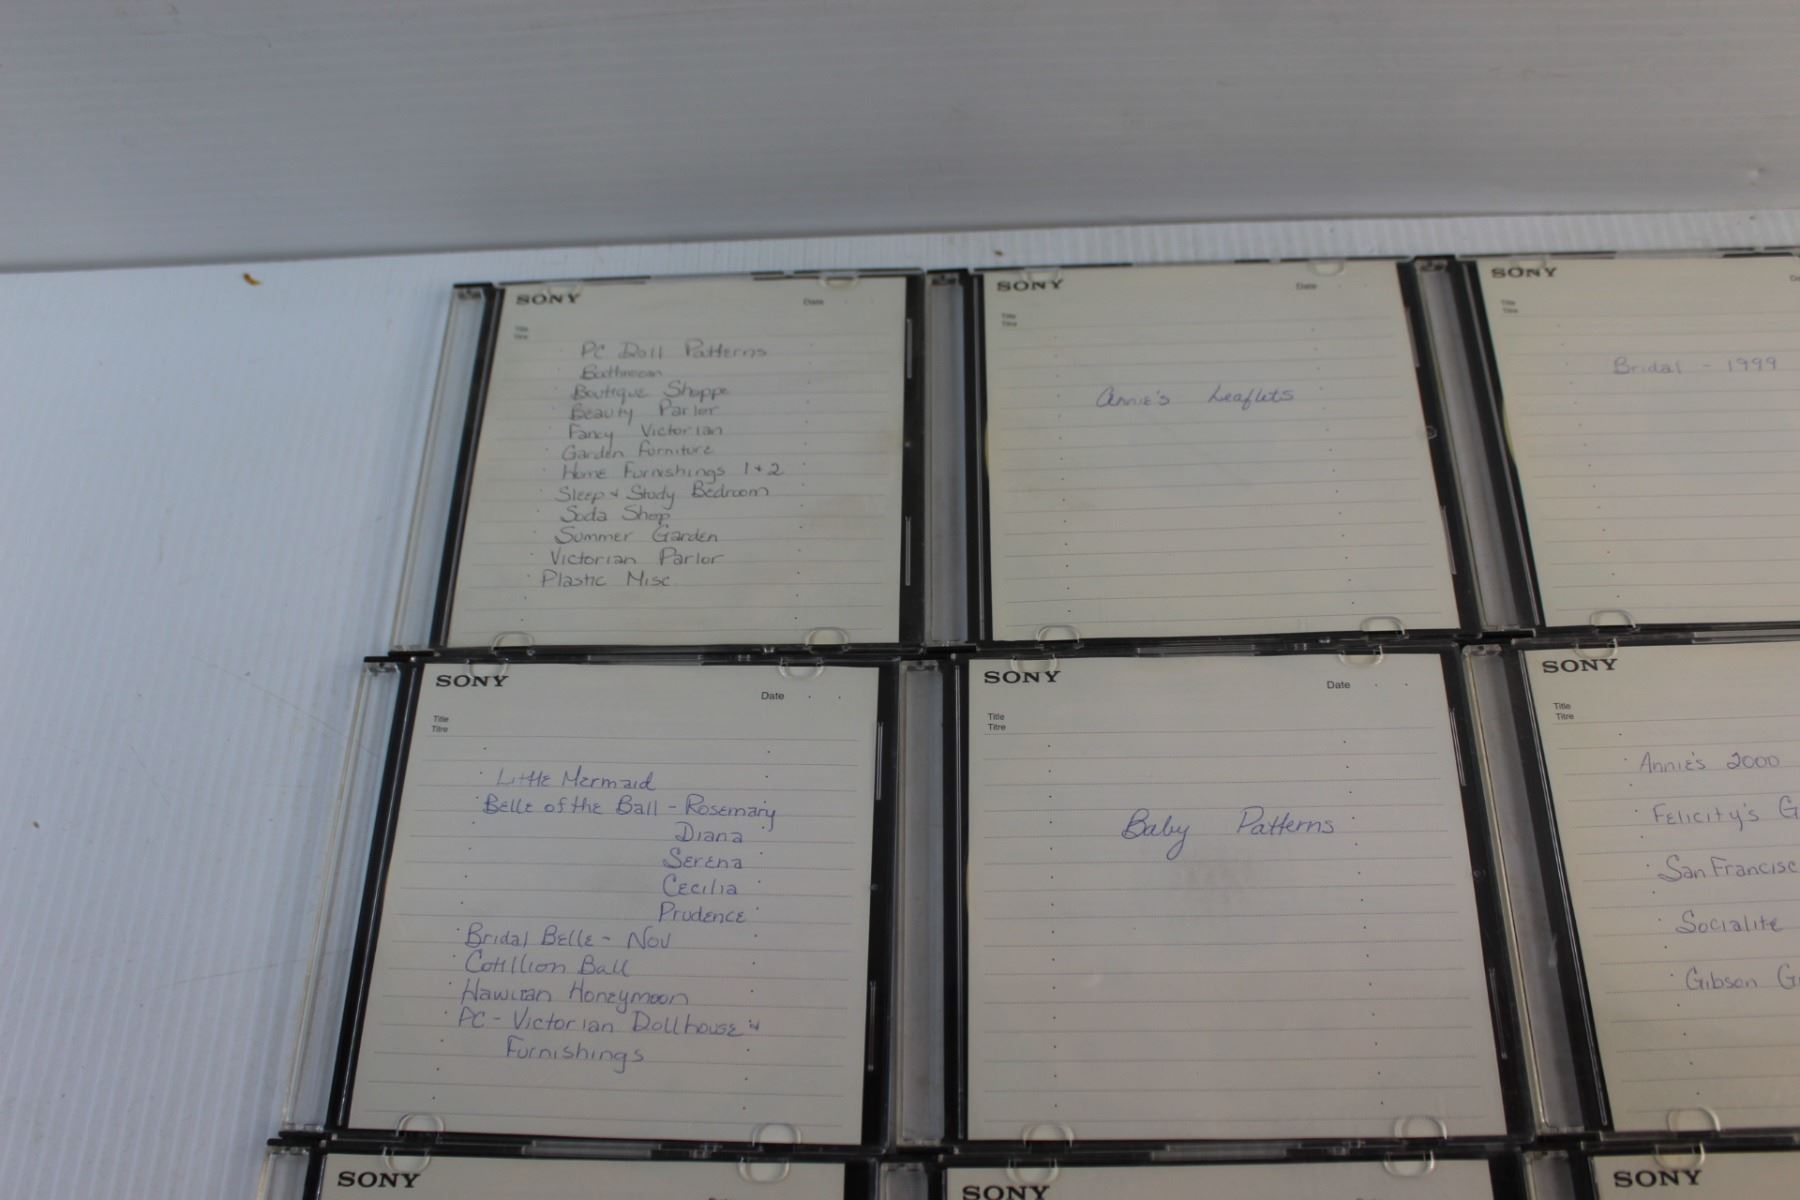 SONY
Date
Title
Titre
PC Doll Patterns
Bathroom
Boutique Shoppe
Beauty Parlor
Fancy Victorian
Garden Furniture
Home Furnishings 1+2
Sleep + Study Bedroom
Soda Shop
Summer Garden
Victorian Parlor
Plastic Misc
SONY
Date
Title
Titre
Annie's Leaflets
SONY
Title
Titre
Bridal - 1999
SONY
Date
Title
Titre
Little Mermaid
Belle of the Ball - Rosemary
Diana
Serena
Cecilia
Prudence
Bridal Belle - Nov
Cotillion Ball
Hawiian Honeymoon
PC - Victorian Dollhouse +
Furnishings
SONY
Date
Title
Titre
Baby Patterns
SONY
Title
Titre
Annie's 2000
Felicity's G
San Francisc
Socialite
Gibson G
SONY
SONY
SONY